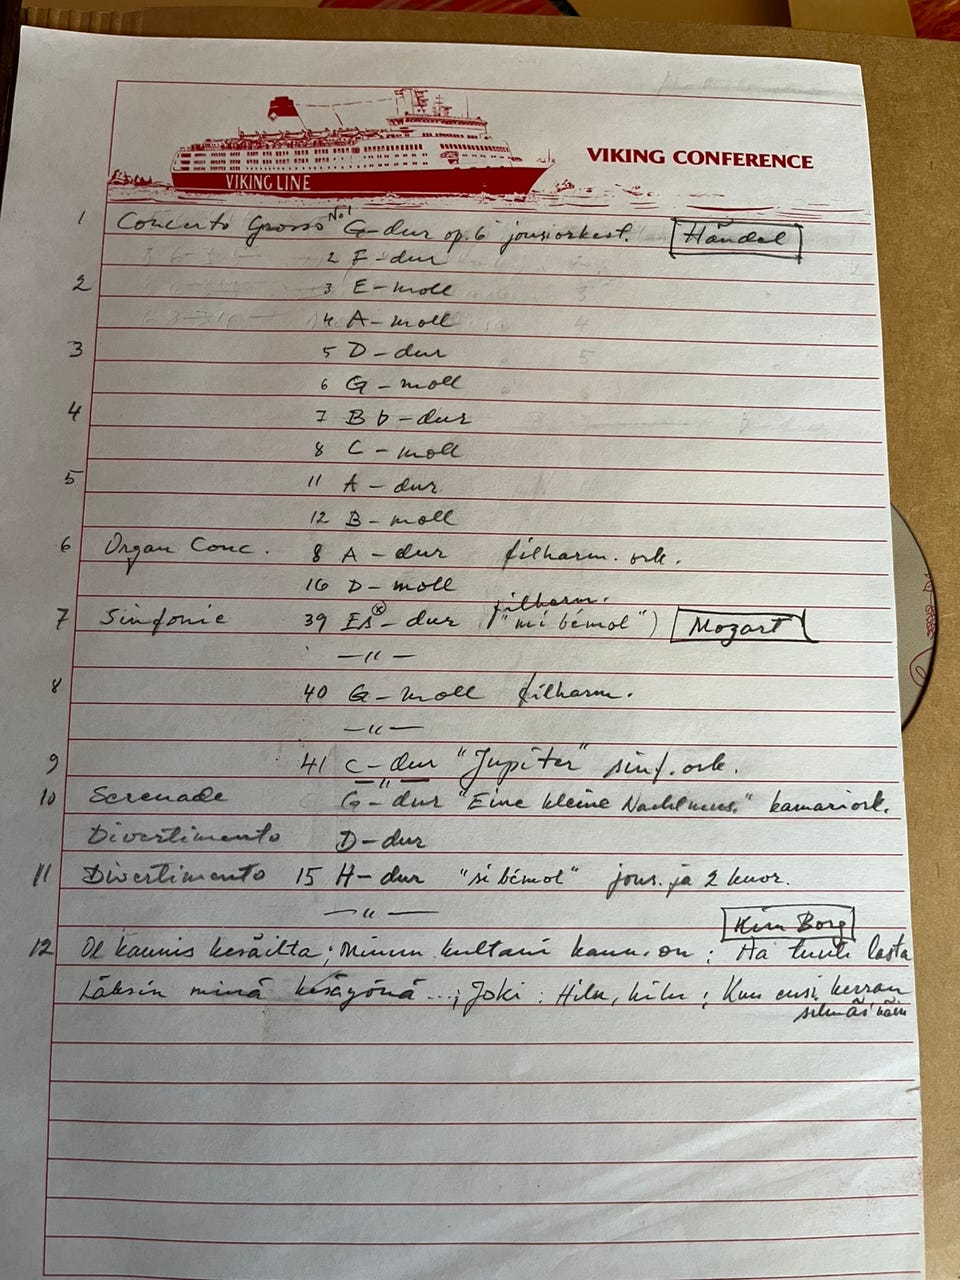 VIKING CONFERENCE
VIKING LINE
1 Concerto Grosso No1 G-dur op.6 jousiorkest. Händel
2 F-dur
2 3 E-moll
4 A-moll
3 5 D-dur
6 G-moll
4 7 Bb-dur
8 C-moll
5 11 A-dur
12 B-moll
6 Organ Conc. 8 A-dur filharm. ork.
16 D-moll
filharm.
7 Sinfonie 39 Es-dur ("mi bémol") Mozart
—"—
8 40 G-moll filharm.
—"—
9 41 C-dur "Jupiter" sinf. ork.
10 Serenade G-dur "Eine kleine Nachtmus." kamariork.
Divertimento D-dur
11 Divertimento 15 H-dur "si bémol" jous. ja 2 kuor.
—"—
Kim Borg
12 Ol kaunis kesäilta; Minun kultani kaun. on; tuuti lasta
Läksin minä kesäyönä...; Joki; Hilu, hilu; Kun ensi kerran
silmäs näin